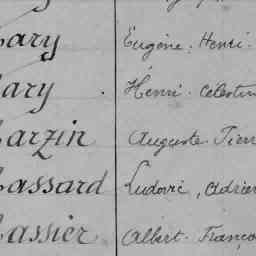 ary Eugène Henri
ary Henri Célestin
arzin Auguste Pierr
assard Ludovic, Adrien
assier Albert Franço